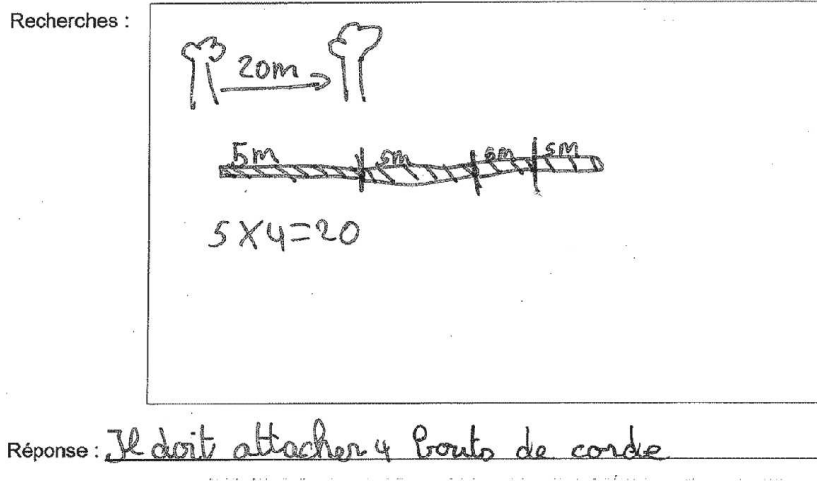 Recherches :
20m
5m 5m 5m 5m
5 X 4 = 20
Réponse : Il doit attacher 4 bouts de corde